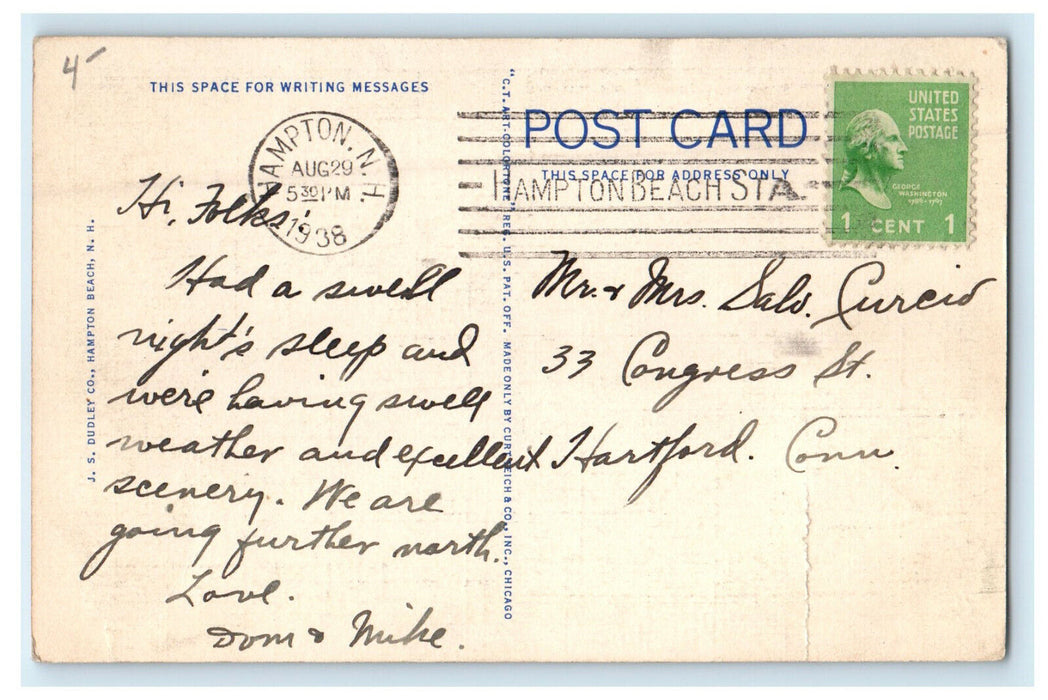 4-
THIS SPACE FOR WRITING MESSAGES
HAMPTON. N. H.
AUG 29
5 30 PM
1938
Hi, Folks:
Had a swell
night's sleep and
we're having swell
weather and excellent
scenery. We are
going further north.
Love.
Dom & Mike.
J. S. DUDLEY CO., HAMPTON BEACH, N. H.
"C.T. ART-COLORTONE" REG. U.S. PAT. OFF. MADE ONLY BY CURT TEICH & CO., INC., CHICAGO
POST CARD
THIS SPACE FOR ADDRESS ONLY
HAMPTON BEACH STA.
UNITED
STATES
POSTAGE
GEORGE
WASHINGTON
1789-1797
1 CENT 1
Mr. & Mrs. Salv. Curcio
33 Congress St.
Hartford. Conn.